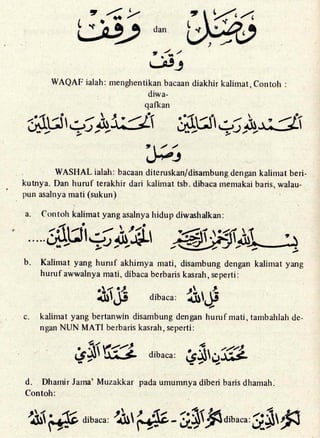 وَصَلْ dan وَقَفْ
وَقَفْ
WAQAF ialah: menghentikan bacaan diakhir kalimat, Contoh :
diwa-
qafkan
اَلْحَمْدُ لِلّٰهِ رَبِّ الْعَالَمِيْنَ اَلْحَمْدُ لِلّٰهِ رَبِّ الْعَالَمِيْنْ
وَصَلْ
WASHAL ialah: bacaan diteruskan/disambung dengan kalimat beri-
kutnya. Dan huruf terakhir dari kalimat tsb. dibaca memakai baris, walau-
pun asalnya mati (sukun)
a. Contoh kalimat yang asalnya hidup diwashalkan:
بِسْمِ اللّٰهِ الرَّحْمٰنِ الرَّحِيْمِ الْحَمْدُ لِلّٰهِ رَبِّ الْعَالَمِيْنَ .....
b. Kalimat yang huruf akhirnya mati, disambung dengan kalimat yang
huruf awwalnya mati, dibaca berbaris kasrah, seperti:
قُلْ اللّٰهُ dibaca: قُلِ اللّٰهُ
c. kalimat yang bertanwin disambung dengan huruf mati, tambahlah de-
ngan NUN MATI berbaris kasrah, seperti:
مُحَمَّدٌ الَّذِيْ dibaca: مُحَمَّدُنِ الَّذِيْ
d. Dhamir Jama' Muzakkar pada umumnya diberi baris dhamah.
Contoh:
لَكُمُ الدِّيْنَ dibaca: لَكُمْ الدِّيْنَ - عَلَيْهِمُ اللّٰهُ dibaca: عَلَيْهِمْ اللّٰهُ